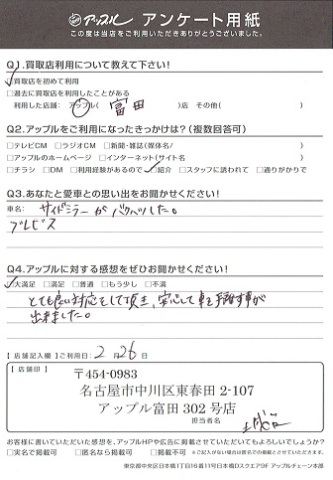 アップル アンケート用紙
この度は当店をご利用いただきありがとうございました。
Q1.買取店利用について教えて下さい!
□買取店を初めて利用
□過去に買取店を利用したことがある
利用した店舗: アップル( 富田 )店 その他( )
Q2.アップルをご利用になったきっかけは?(複数回答可)
□テレビCM □ラジオCM □新聞・雑誌(媒体名/ )
□アップルのホームページ □インターネット(サイト名 )
□チラシ □DM □利用経験があるので □紹介 □スタッフに誘われて □通りがかりで
Q3.あなたと愛車との思い出をお聞かせください!
車名: サイドミラーがバキバキでした。
ブレビス
Q4.アップルに対する感想をぜひお聞かせください!
□大満足 □満足 □普通 □もう少し □不満
とても良い対応をして頂き、安心して車を手放す事が
出来ました。
【店舗記入欄】ご利用日: 2月26日
【店舗印】
〒454-0983
名古屋市中川区東春田 2-107
アップル富田 302 号店
担当者名
お客様に書いていただいた感想を、アップルHPや広告に掲載させていただいてもよろしいでしょうか?
□実名で掲載可 □匿名なら掲載可 □掲載不可 ※ご記入がない場合は匿名での掲載とさせていただきます。
東京都中央区日本橋1丁目16番11号日本橋Dスクエア3F アップルチェーン本部